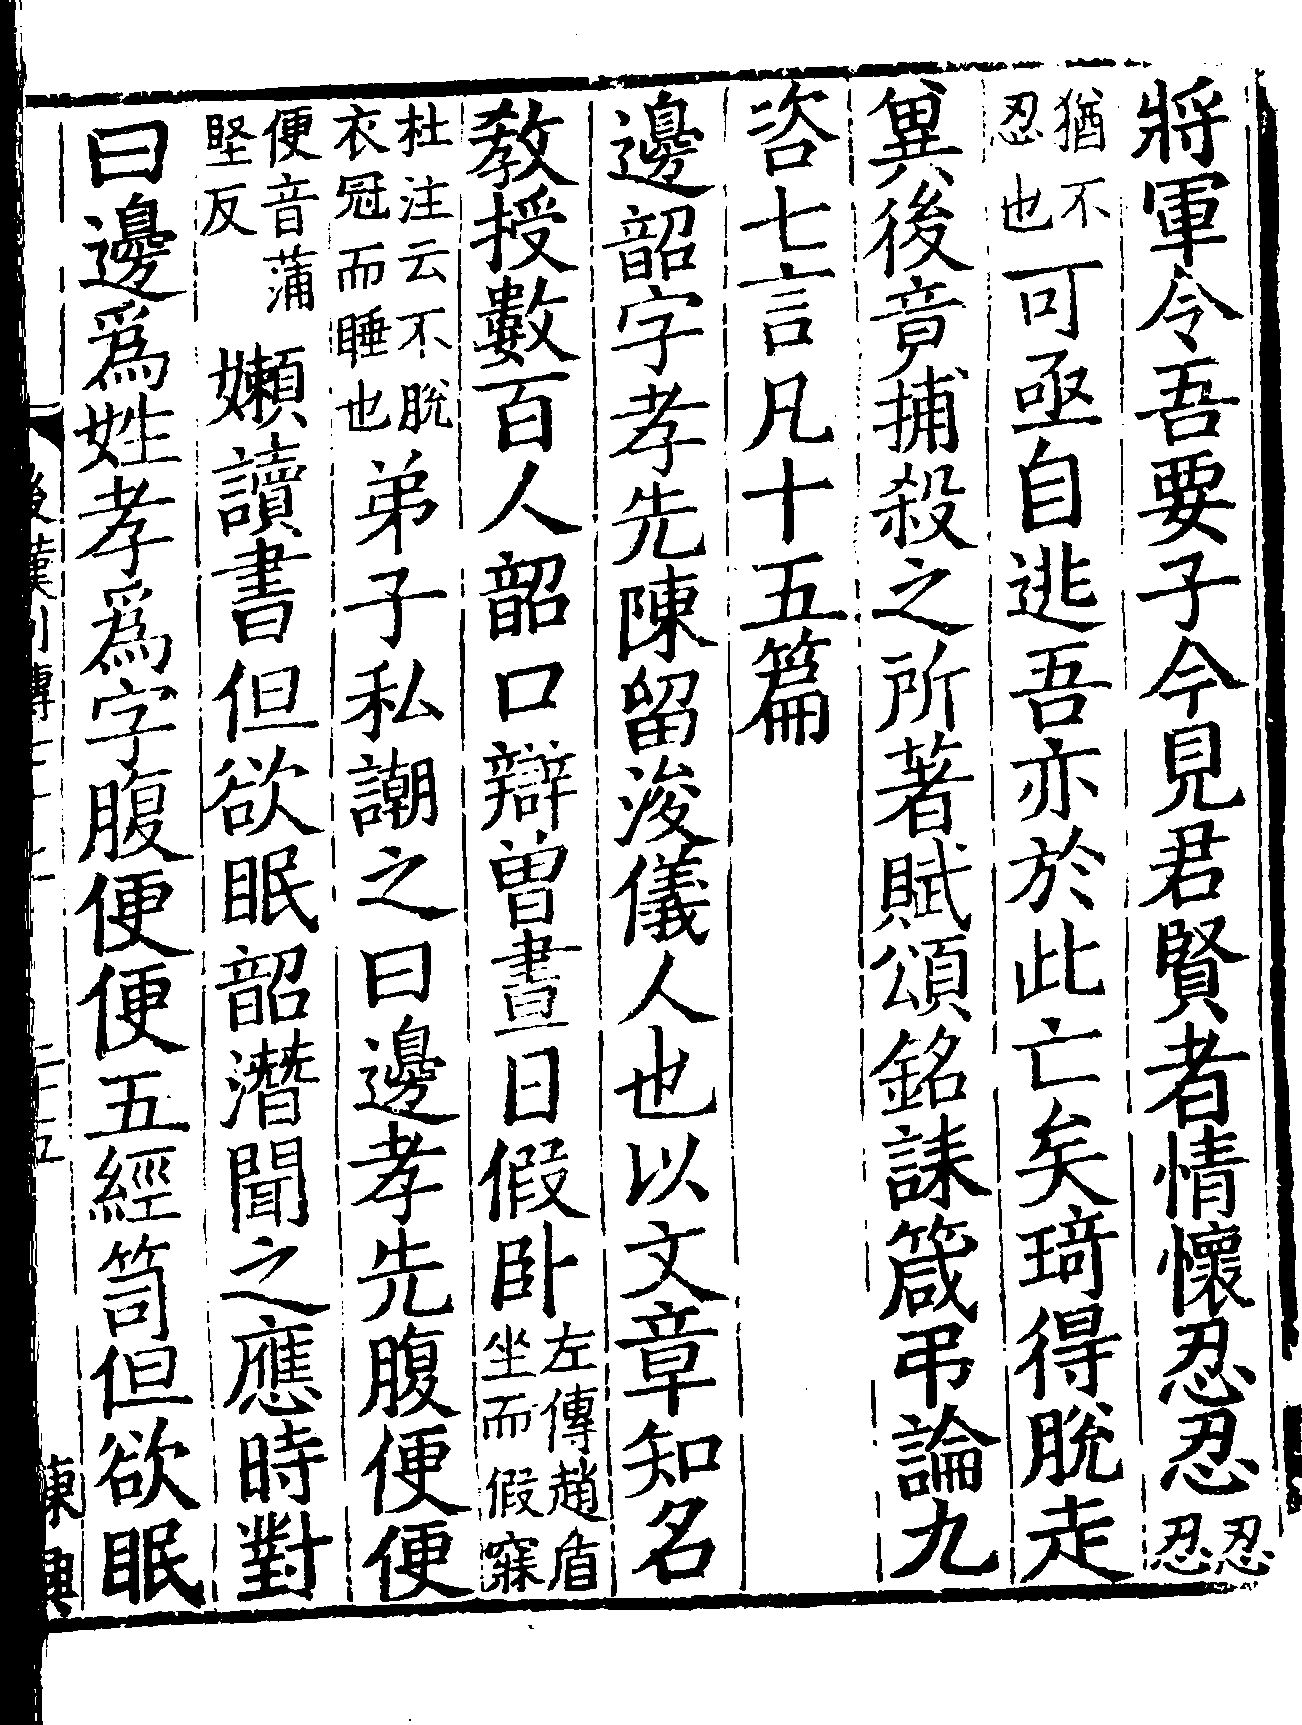 將軍令吾要子今見君賢者情懷忍忍忍忍
猶不忍也可亟自逃吾亦於此亡矣琦得脫走
兾後竟捕殺之所著賦頌銘誄箴弔論九
咨七言凡十五篇
邊韶字孝先陳留浚儀人也以文章知名
教授數百人韶口辯曾晝日假卧左傳趙盾坐而假寐
杜注云不脫衣冠而睡也弟子私謿之曰邊孝先腹便便
便音蒲堅反嬾讀書但欲眠韶潛聞之應時對
曰邊爲姓孝爲字腹便便五經笥但欲眠